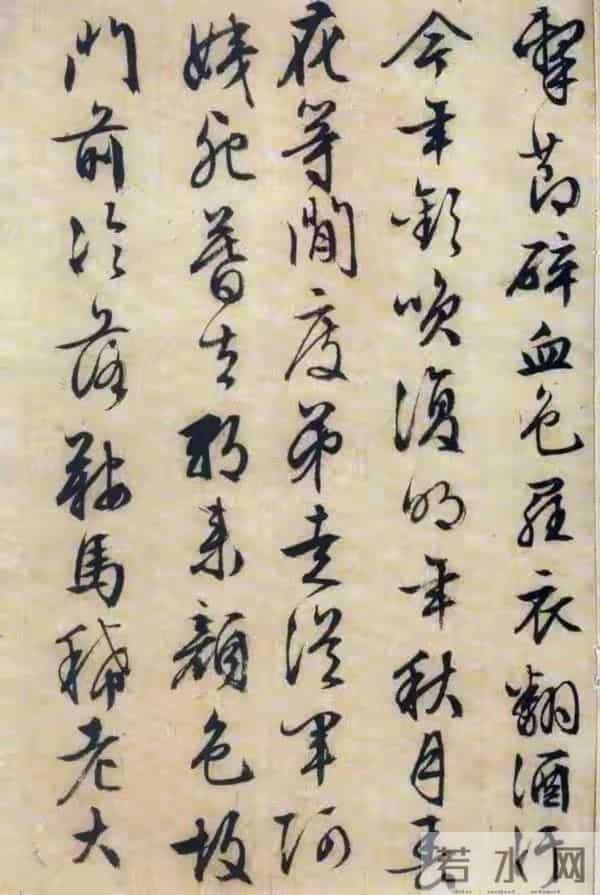 擊節碎血色羅衣翻酒汙
今年歡咲復明年秋月春
花等閒度弟走從軍阿
姨死暮去朝來顏色故
門前冷落鞍馬稀老大
若水网